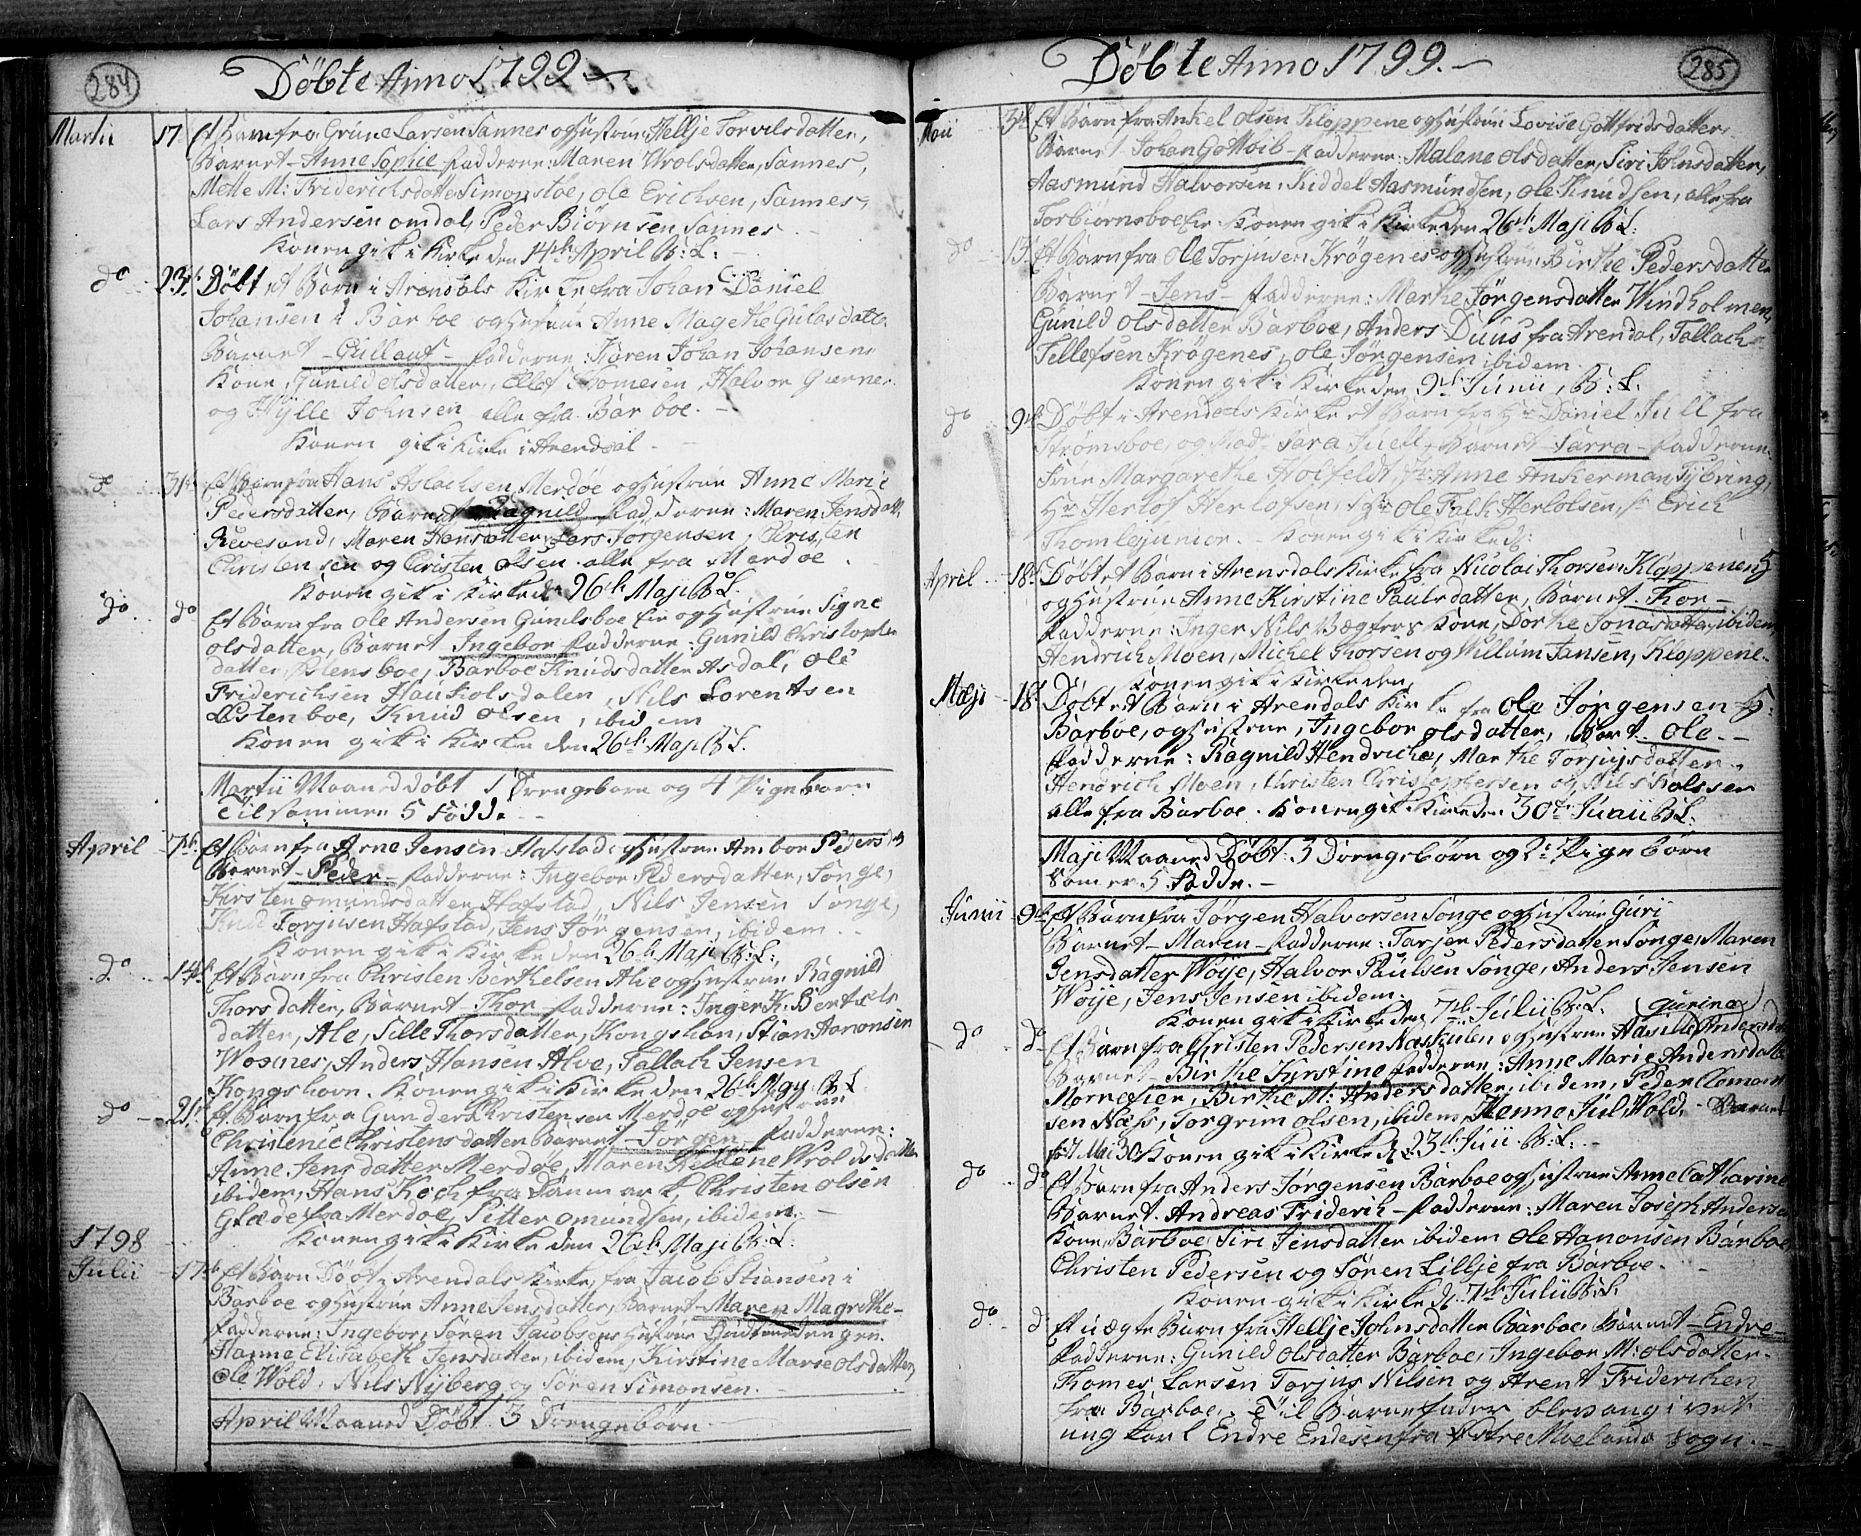 284
Döbte Anno 1799
Martii 17 Et Barn fra Grüne Larsen Sannes og Hustrue Hellje Torvilsdatter,
Barnet - Anne Sophie - Fadderne: Maren Wrolsdatter, Sannes,
Mette M: Friderichsdatter Simonstöe, Ole Erichsen, Sannes,
Lars Andersen Omdal, Peder Biörnsen Sannes
Konen gik i Kirke den 14de April B: L:
do 23de Döbt et Barn i Arendals Kirke fra Johan Daniel
Johansen i Barboe og Hustrue Anne Magrethe
Barnet - Gustauf - Fadderne: Karen Johan Johansens
Kone, Gunild Olsdatter, Ellef Thomesen, Halvor
og Johnsen alle fra Barboe.
Konen gik i Kirke i Arendaal
31 Et Barn fra Hans Aslachsen Merdöe og Hustrue Anne Marie
Pedersdatter, Barnet Ragnild Fadderne: Maren Jensdatt.
Revesand, Maren Hansdatter, Lars Jörgensen, Christen
Christensen og Christen Olsen alle fra Merdöe
Konen gik i Kirke d. 26de Maji B L.
do do Et Barn fra Ole Andersen Gunilsboe Eie og Hustrue Signe
Olsdatter, Barnet Ingebor Fadderne: Gunild Christophe
datter Östensboe, Barboe Knudsdatter Asdal, Ole
Friderichsen Haukolsdalen, Nils Lorentsen
Östenboe, Knud Olsen, ibidem
Konen gik i Kirke den 26de Maji B L.
Martii Maaned Döbt 1 Drengebarn og 4 Pigebörn
Tilsammen 5 Födde
April 7de Et Barn fra Arne Jensen Hafstad og Hustrue Anbor Peders
Barnet - Peder - Fadderne: Ingebor Pedersdatter, Songe,
Kirsten Omundsdatter Hafstad, Nils Jensen Songe,
Knud Torjusen Hafstad, Jens Jörgensen, ibidem
Konen gik i Kirke den 26de Maji B: L:
do 14de Et Barn fra Christen Berthelsen Alve og Hustrue Ragnild
Thorsdatter, Barnet Thor Fadderne: Inger K. Bertels
datter, Ale, Sille Thorsdatter, Kongshavn, Stian Aanonsen
Woxnes, Anders Hansen Alve, Tallach Jensen
Kongshavn. Konen gik i Kirke den 26de May B L
do 21 Et Barn fra Gunder Christensen Merdöe og Hustrue
Christence Christensdatter Barnet Jörgen Fadderne:
Anne Jensdatter Merdöe, Maren Hellene Wrolsdatter
ibidem, Hans Koch fra Danmark, Christen Olsen
Glæde fra Merdöe, Pitter Omundsen, ibidem.
Konen gik i Kirke den 26de Maji B: L:
1798
Julii 17de Et Barn Döbt i Arendals Kirke, fra Jacob Stiansen i
Barboe og Hustrue Anne Jensdatter, Barnet - Maren Magrethe -
Fadderne: Ingebor, Sören Jacobsens Hustrue
Hanne Elisabeth Jensdatter, ibidem, Kirstine Marie Olsdatter,
Ole Wold, Nils Nyberg og Sören Simonsen.
April Maaned Döbt 3 Drengebörn
285
Döbte Anno 1799.
Maii 5te Et Barn fra Ankel Olsen Kloppene og Hustrue Lovise Gottfridsdatter,
Barnet Johan Gottoib - Fadderne: Malene Olsdatter, Siri Johnsdatter,
Aasmund Halvorsen, Kiddel Aasmundsen, Ole Knudsen, alle fra
Torbiörnsboe Eie. Konen gik i Kirke den 26de Maji B L:
do 13 Et Barn fra Ole Torjusen Krögenes og Hustrue Birthe Pedersdatter
Barnet - Jens - Fadderne: Marthe Jörgensdatter Windholmen,
Gunild Olsdatter Barboe, Anders Duus fra Arendal, Tallach
Tellefsen Krögenes, Ole Jörgensen ibidem
Konen gik i Kirke den 9de Junii, B: L:
do 9de Döbt i Arendals Kirke et Barn fra Hr Daniel Juell fra
Strömsboe, og Mad: Sara Juell, Barnet - Sarra - Fadderne:
Frue Margarethe Hoifeldt, Anne Ankerman Tybring,
Hr Herlof Herlofsen, Ole Falk Herlofsen, Erich
Thomle junior. - Konen gik i Kirke d:
April 18 Döbt et Barn i Arensdals Kirke fra Nicolai Thorsen Kloppene
og Hustrue Anne Kirstine Paulsdatter, Barnet - Thor -
Fadderne: Inger Nils Bægfers Kone, Dorthe Jonasdatter, ibidem,
Hendrich Moen, Michel Thorsen og Willum Jansen, Kloppene.
Konen gik i Kirke den,
Maji 18 Döbt et Barn i Arendals Kirke fra Ole Jörgensen
Barboe, og Hustrue, Ingebor Olsdatter, Barnt. Ole. -
Fadderne: Ragnild Hendriche, Marthe Torjusdatter,
Hendrich Moen, Christen Christophersen og Nils
alle fra Barboe. Konen gik i Kirke den 30te Junii B L.
Maji Maaned Döbt 3 Drengebörn og 2 Pigebörn
som er 5 Födde. -
Junii 9de Et Barn fra Jörgen Halvorsen Songe og Hustrue Guri
Barnet - Maren - Fadderne: Tarjer Pedersdatter Songe, Maren
Jensdatter Wöije, Halvor Paulsen Songe, Anders Jensen
Wöije, Jens Jensen ibidem.
Konen gik i Kirke den 7de Julii B: L. (Gurine)
do do Et Barn fra Christen Pedersen Naskilen og Hustrue Aasille Andersdat
Barnet - Birthe Kirstine Fadderne: Anne Marie Andersdatter
Mörnefier, Birthe M: Andersdatter, ibidem, Peder
sen Næs, Torgrim Olsen, ibidem, Henne Juul Wold. - Barnet
Konen gik i Kirke d. 23de Juii B: L: -
do do Et Barn fra Anders Jörgensen Barboe og Hustrue Anne Catharine
Barnet. Andreas Friderich - Fadderne: Maren Joseph Anders
Kone, Barboe, Siri Jensdatter ibidem Ole Hanonsen Barboe,
Christen Pedersen og Sören Lillje fra Barboe.
Konen gik i Kirke d. 7de Julii B: L.
do d Et uægte Barn fra Hellje Johnsdatter Barboe, Barnet - Endre -
Fadderne: Gunild Olsdatter Barboe, Ingebor M: Olsdatter.
Thomes Larsen Torjus Nilsen og Arent Friderichsen
fra Barboe. Til Barnefader blev angivet
ung Karl Endre Endesen fra Östre Moelands Sogn. -